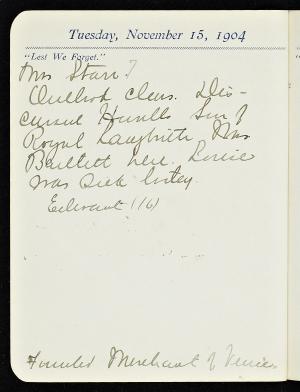 Tuesday, November 15, 1904
"Lest We Forget."
Mrs Starr?
Outlook Class. Dis-
cussed Howells Son of
Royal Langbrith. Mrs
Bartlett here. Louise
was sick today.
(16)
Founded Merchant of Venice